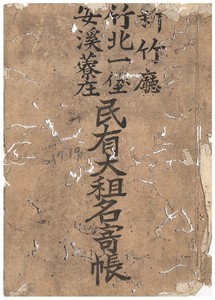 新竹廳
竹北一堡
安溪藔庄
民有大租名寄帳